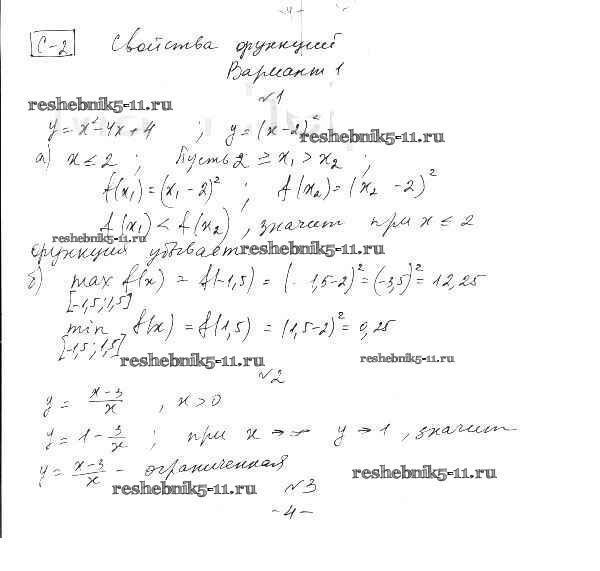 -4-
С-2 Свойства функций
Вариант 1
№1
reshebnik5-11.ru
y = x² - 4x + 4 ; y = (x - 2)²
reshebnik5-11.ru
а) x ≤ 2 ; Пусть 2 ≥ x₁ > x₂ ;
f(x₁) = (x₁ - 2)² ; f(x₂) = (x₂ - 2)²
f(x₁) < f(x₂), значит при x ≤ 2
reshebnik5-11.ru
функция убывает
reshebnik5-11.ru
б) max f(x) = f(-1,5) = (-1,5-2)² = (-3,5)² = 12,25
[-1,5; 1,5]
min f(x) = f(1,5) = (1,5-2)² = 0,25
[-1,5; 1,5]
reshebnik5-11.ru
reshebnik5-11.ru
№2
y = x-3/x , x > 0
y = 1 - 3/x ; при x → ∞ y → 1, значит
y = x-3/x - ограниченная
reshebnik5-11.ru
reshebnik5-11.ru
№3
-4-